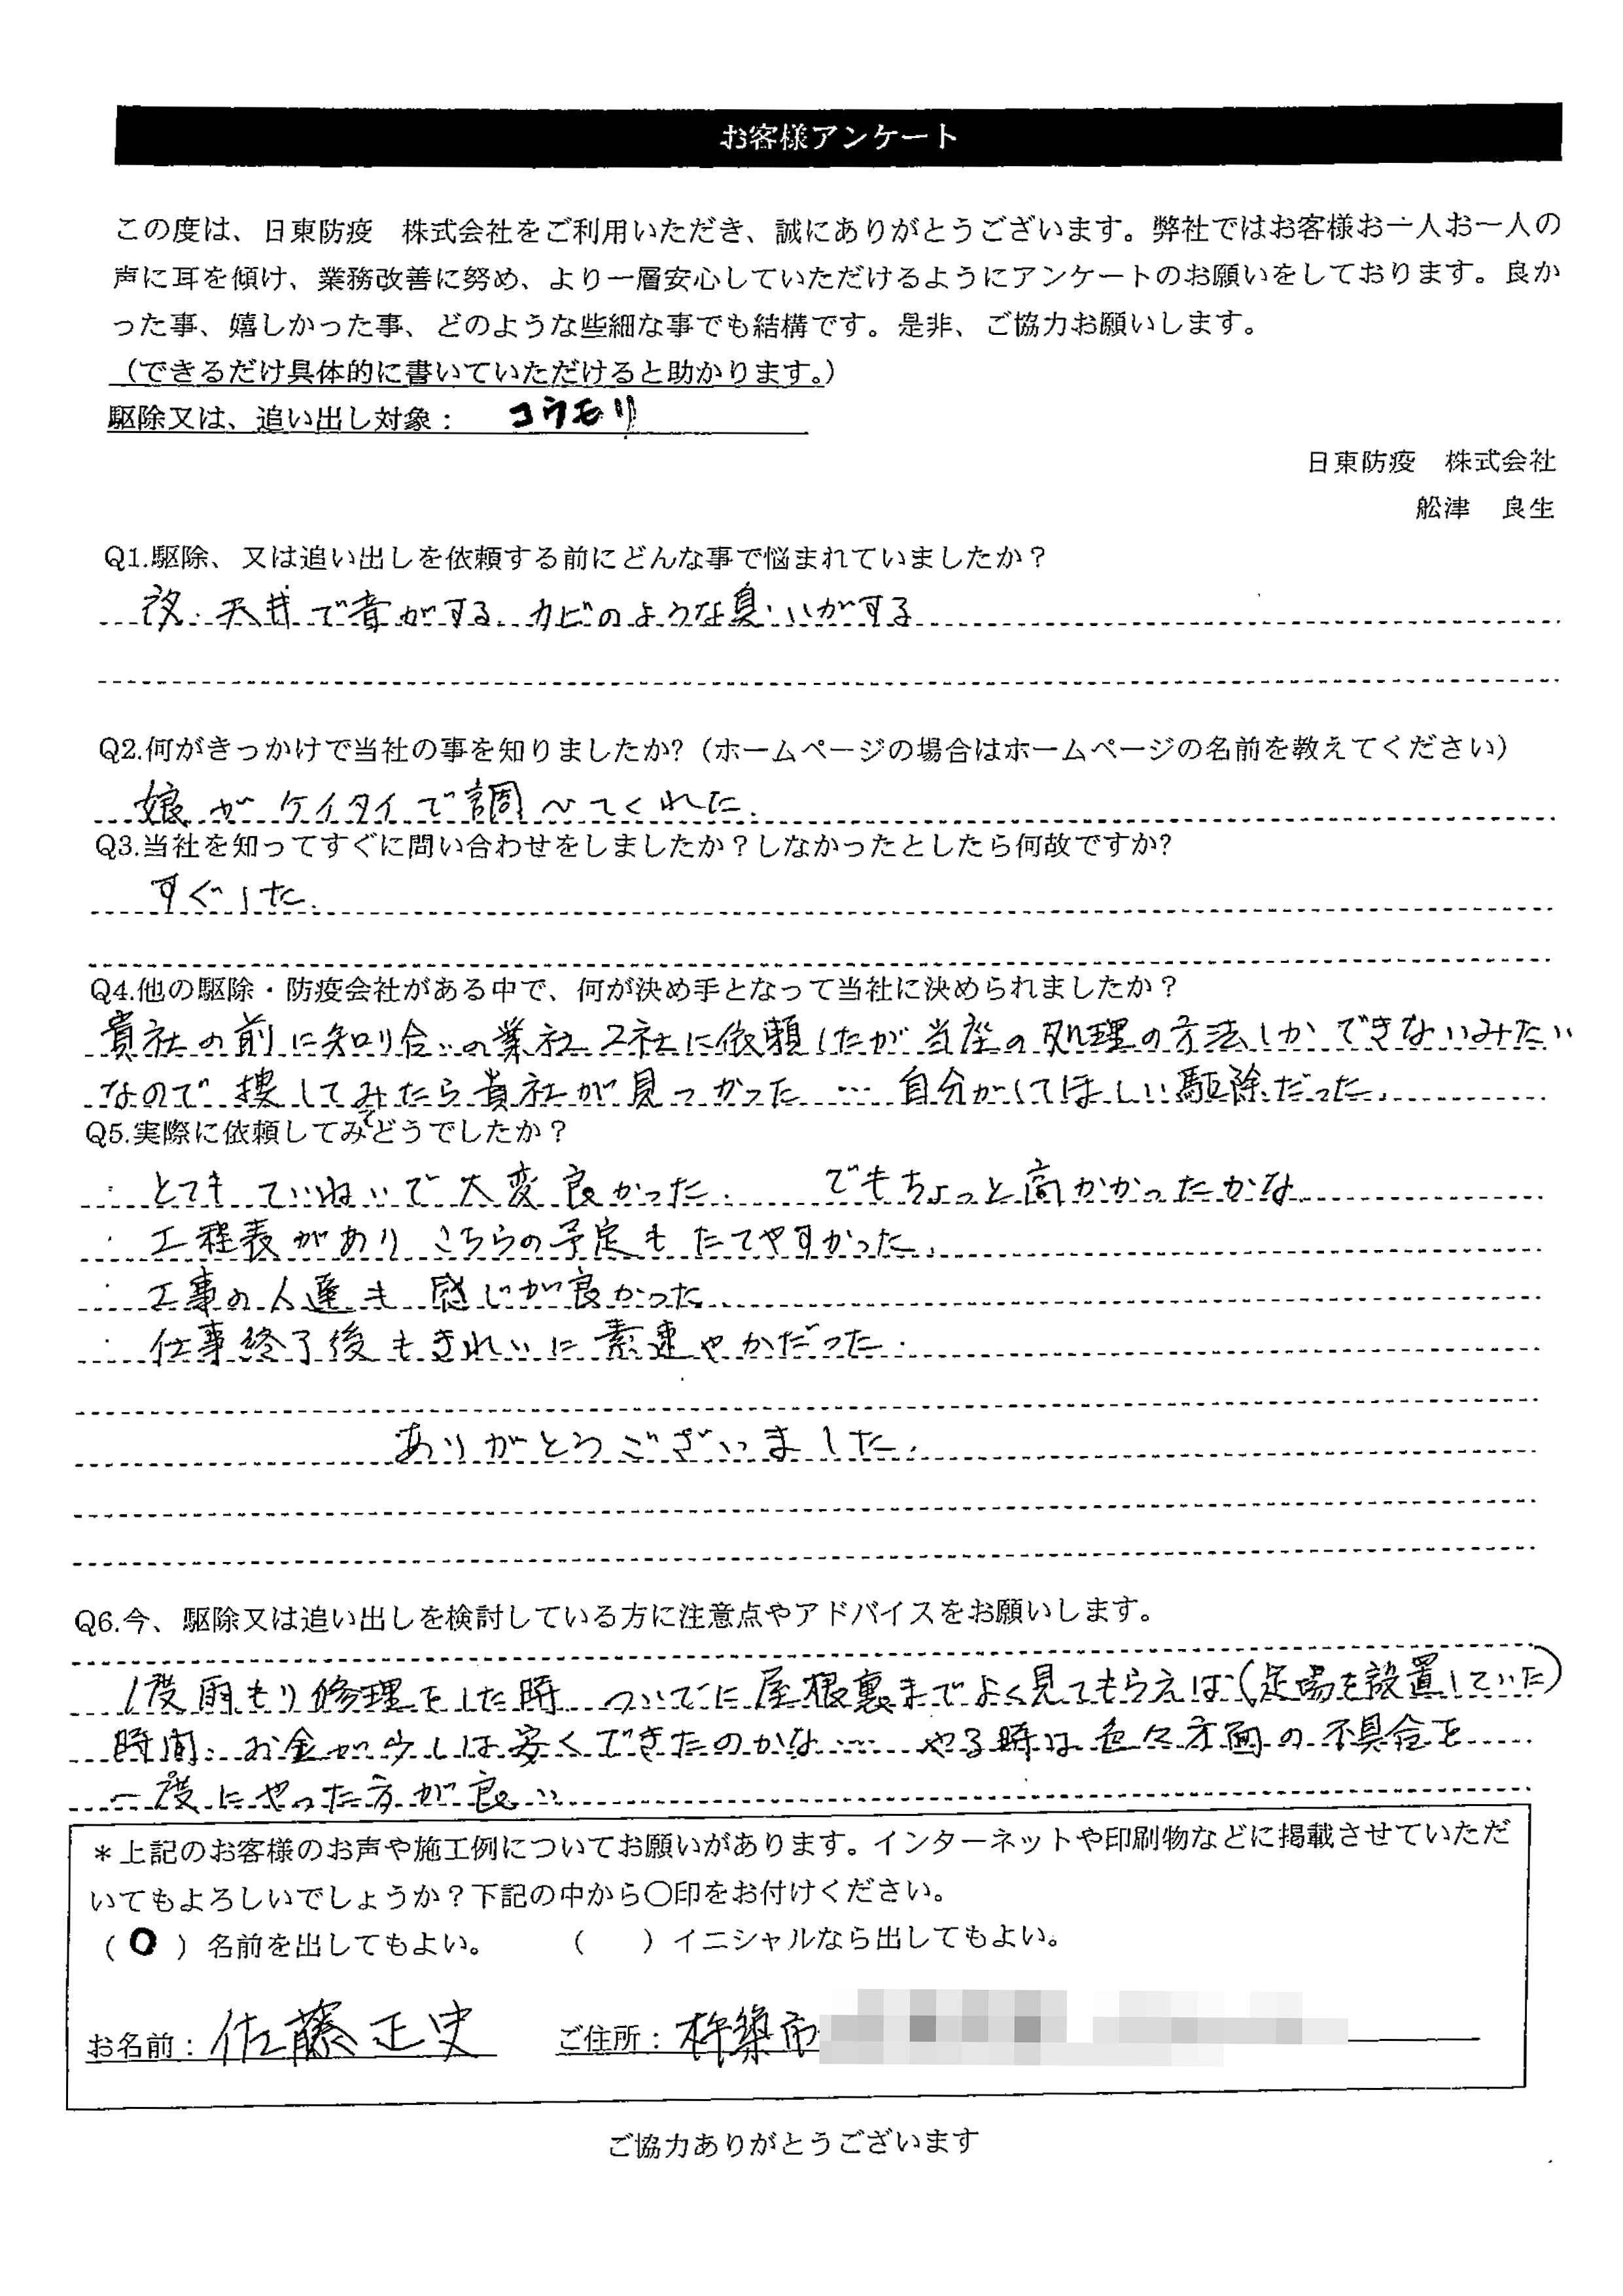 お客様アンケート
この度は、日東防疫 株式会社をご利用いただき、誠にありがとうございます。弊社ではお客様お一人お一人の
声に耳を傾け、業務改善に努め、より一層安心していただけるようにアンケートのお願いをしております。良か
った事、嬉しかった事、どのような些細な事でも結構です。是非、ご協力お願いします。
（できるだけ具体的に書いていただけると助かります。）
駆除又は、追い出し対象： コウモリ
日東防疫 株式会社
舩津 良生
Q1.駆除、又は追い出しを依頼する前にどんな事で悩まれていましたか？
夜.天井で音がする.カビのような臭いがする
Q2.何がきっかけで当社の事を知りましたか?（ホームページの場合はホームページの名前を教えてください）
娘がケイタイで調べてくれた.
Q3.当社を知ってすぐに問い合わせをしましたか？しなかったとしたら何故ですか?
すぐした.
Q4.他の駆除・防疫会社がある中で、何が決め手となって当社に決められましたか？
貴社の前に知り合いの業社2社に依頼したが当座の処理の方法しかできないみたい
なので 捜してみたら貴社が見つかった … 自分がしてほしい駆除だった.
Q5.実際に依頼してみてどうでしたか？
・とてもていねいで大変良かった. でもちょっと高かかったかな
・工程表があり こちらの予定も たてやすかった.
・工事の人達も 感じが良かった
・仕事終了後もきれいに素速やかだった.
ありがとうございました.
Q6.今、駆除又は追い出しを検討している方に注意点やアドバイスをお願いします。
1度雨もり修理をした時 ついでに屋根裏までよく見てもらえば(足場を設置していた)
時間.お金が少しは安くできたのかな… やる時は色々方面の不具合を
一度にやった方が良い
＊上記のお客様のお声や施工例についてお願いがあります。インターネットや印刷物などに掲載させていただ
いてもよろしいでしょうか？下記の中から〇印をお付けください。
（ O ）名前を出してもよい。 （ ）イニシャルなら出してもよい。
お名前：佐藤正史 ご住所：杵築市
ご協力ありがとうございます